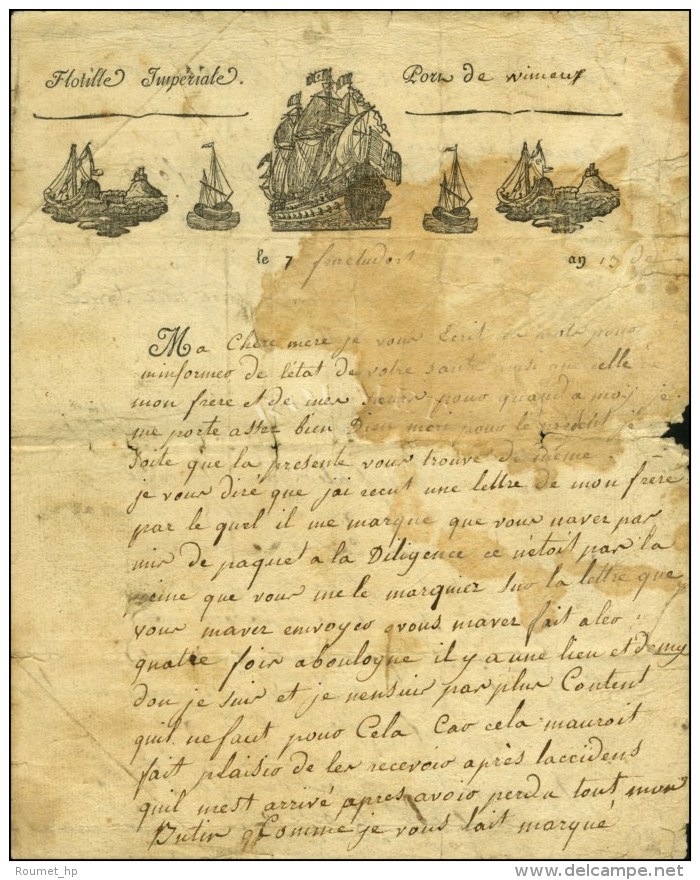 Flotille Impériale. Port de Wimeux
le 7 fructudort an 13 de
Ma Chere mere je vous Ecrit ces mots pour
minformer de létat de votre santé ainsi que celle
mon frère et de mes sœurs pour quand a moy je
me porte asser bien Dieu merci pour le présent je
Soite que la présente vous trouve de même.
je vous dire que jai recut une lettre de mon frère
par le quel il me marque que vous naver pas
mis de paquet a la Diligence ce nétoit pas la
peine que vous me le marquier sur la lettre que
vous maver envoyer vous maver fait aler
quatre fois a boulogne il y a une lieu et demy
dou je suis et je nensuis pas plus Content
quil ne faut pour Cela Car cela mauroit
fait plaisir de les recevoir après laccidens
quil mest arrivé apres avoir perdu tout mon
Butin Comme je vous lait marqué
Roumet_hp
delcampe.net